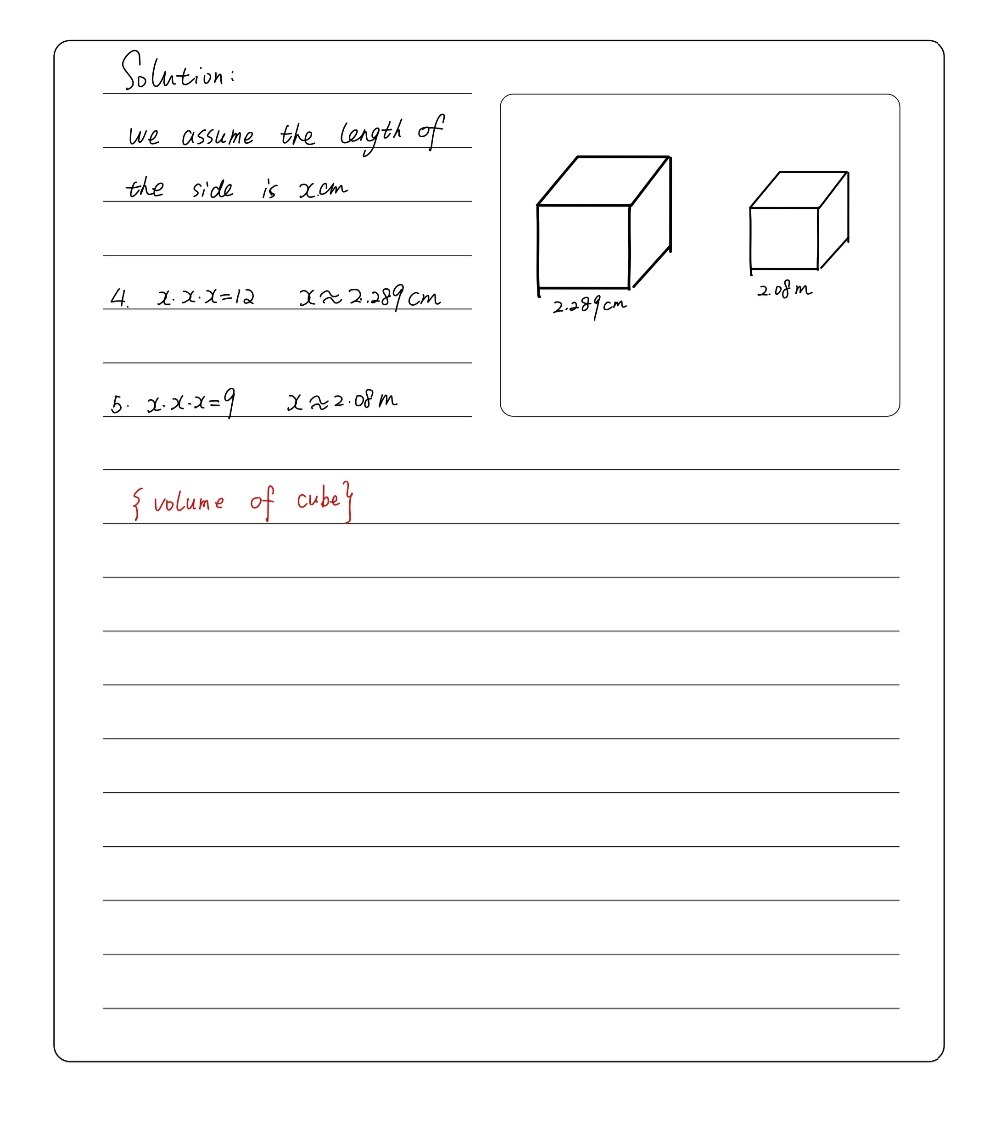 Solution:
we assume the length of
the side is xcm
4. x·x·x=12 x≈2.289cm
5. x·x·x=9 x≈2.08m
2.289cm
2.08m
{volume of cube}